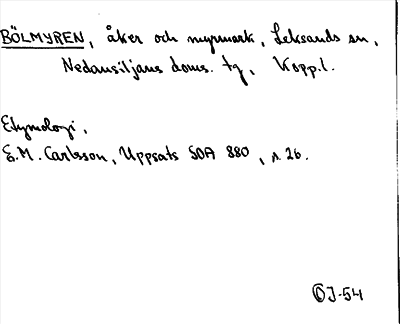 BÖLMYREN, åker och myrmark, Leksands sn,
Nedansiljans doms. tg, Kopp.l.
Etymologi,
E.M. Carlsson, Uppsats SOA 880, s. 26.
OJ-54